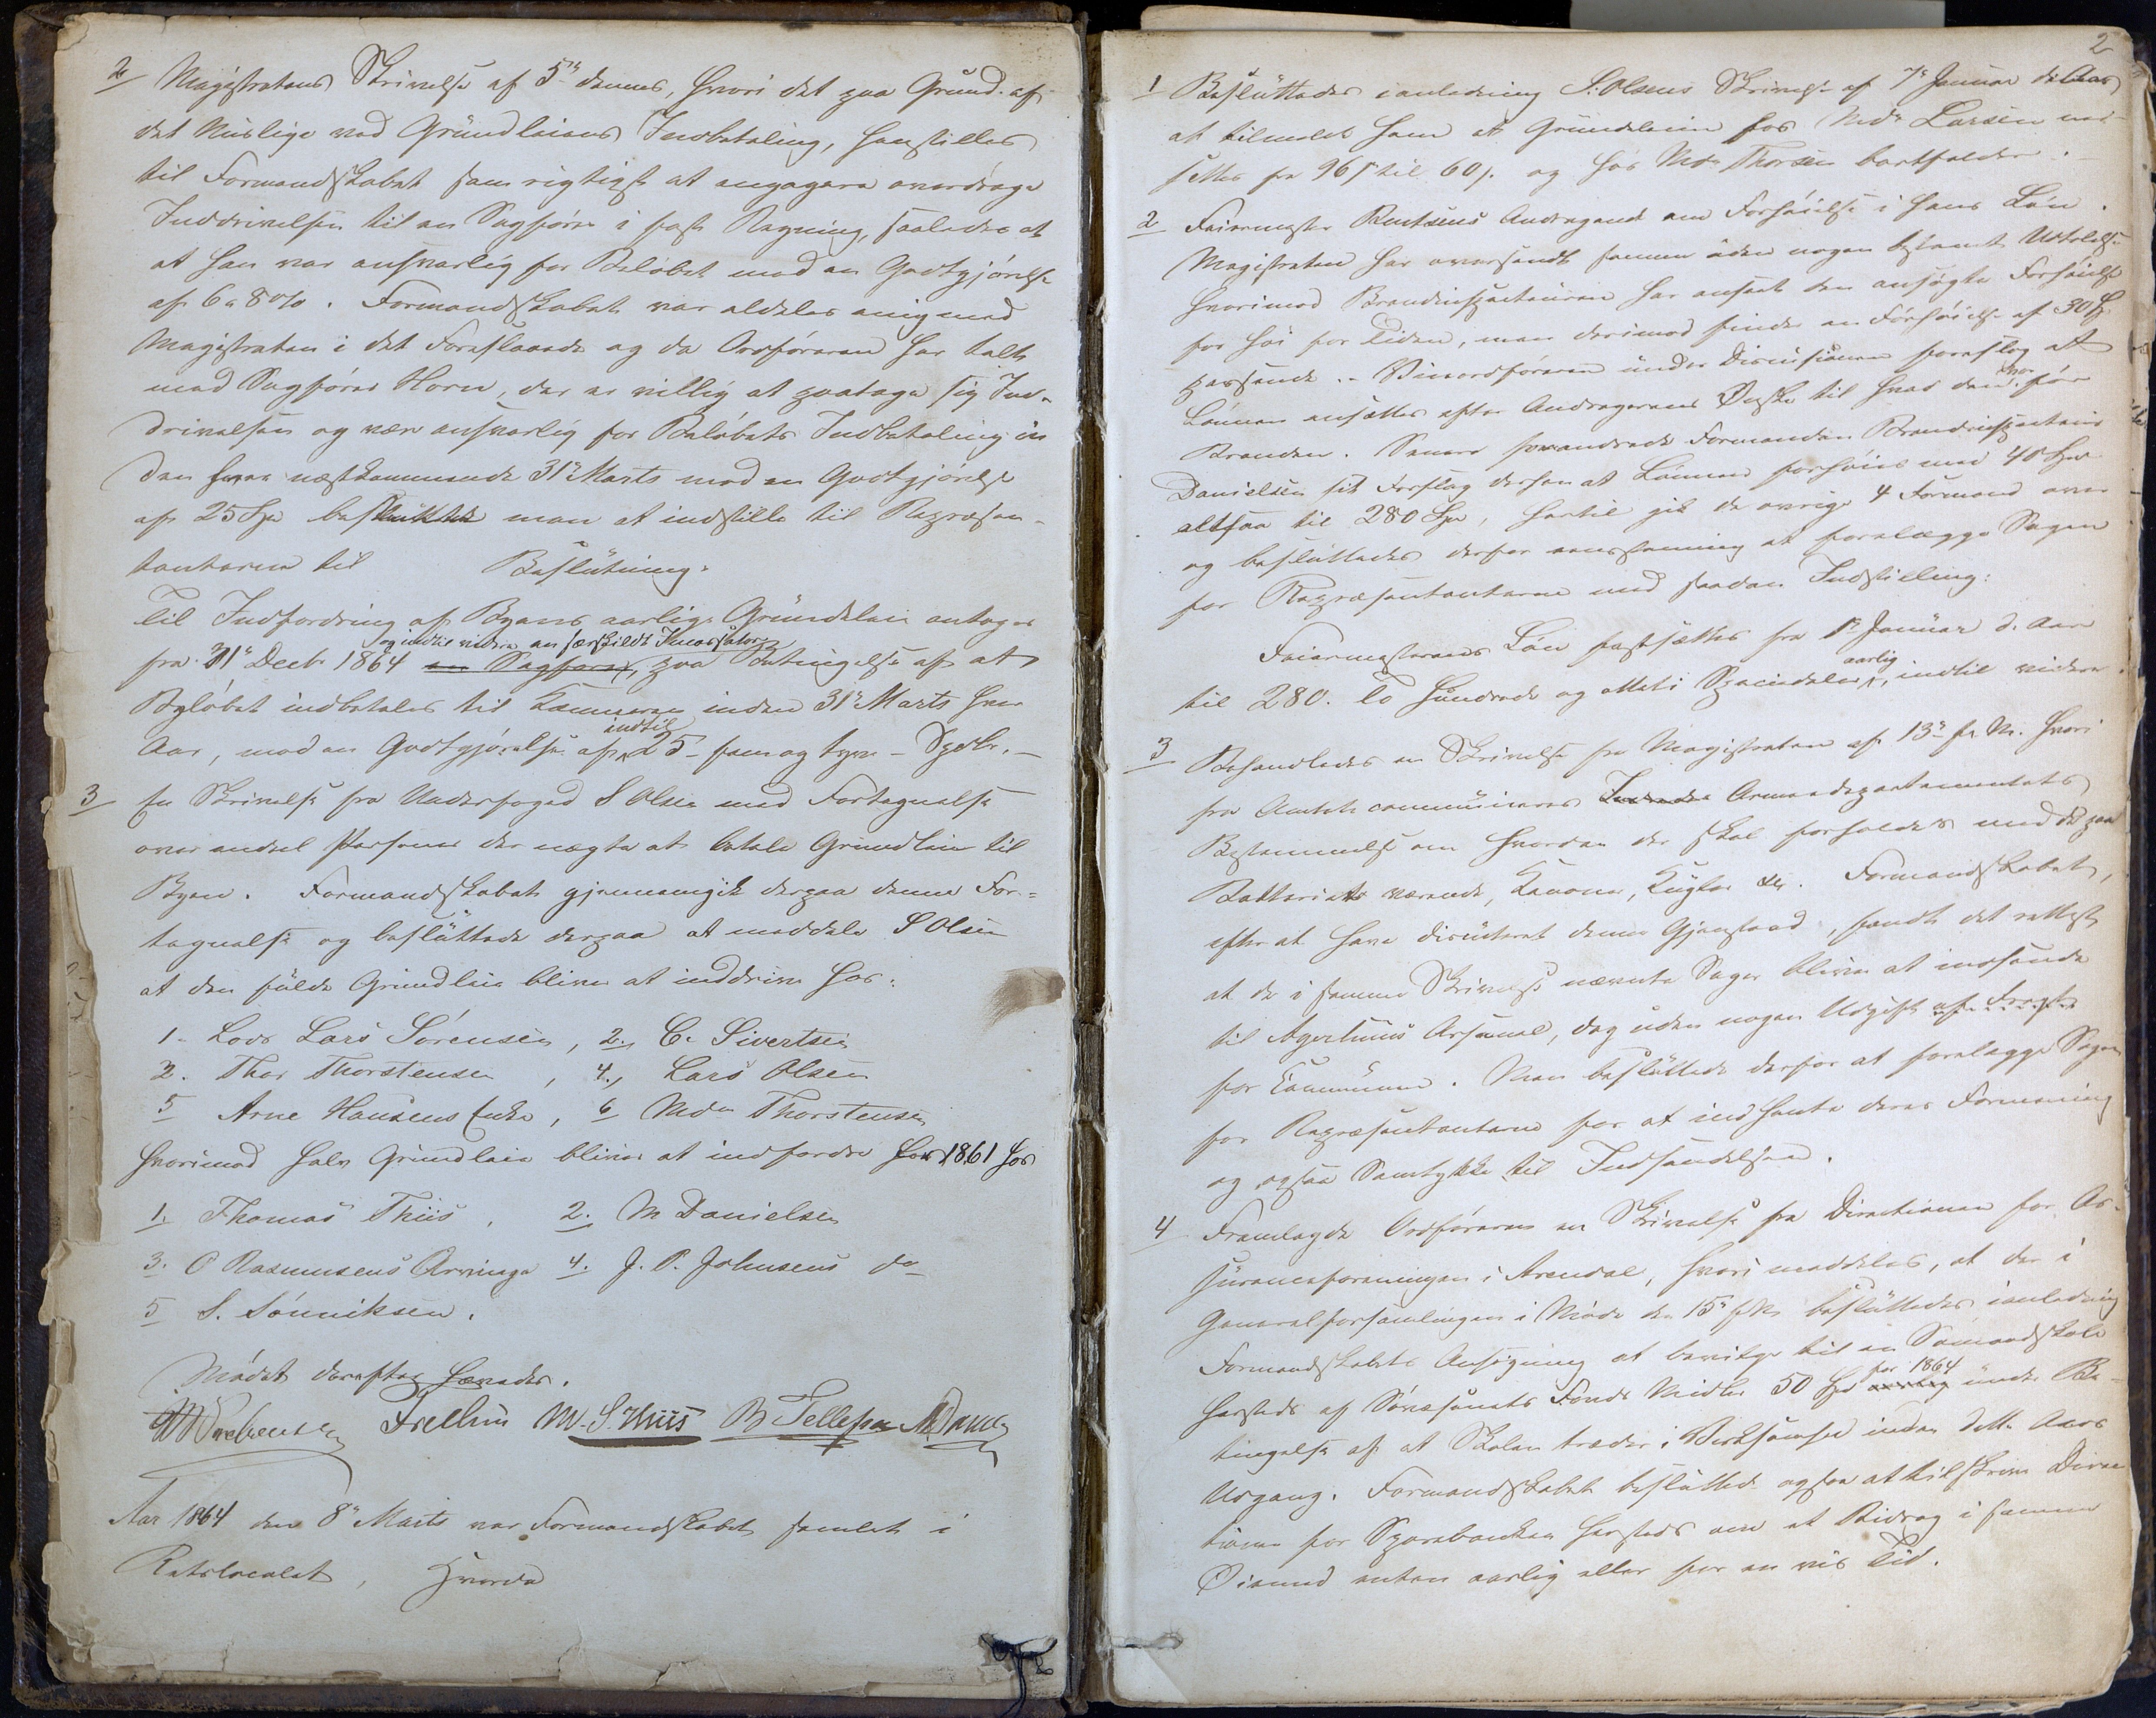 2 Magistratens Skrivelse af 5te dennes, hvori det paa Grund af
det Uvislige ved Grundleiens Indbetaling, henstilles
til Formandskabet som rigtigst at engagere overdrage
Inddrivelsen til en Sagfører i fast Regning, saaledes at
at han var ansvarlig for Beløbet mod en Godtgjørelse
af 6 a 8 %. Formandskabet var aldeles enig med
Magistraten i det Foreslaaede og da Ordføreren har talt
med Sagfører Horn, der er villig at paatage sig Ind-
drivelsen og være ansvarlig for Beløbets Indbetaling in
den hver næstkommende 31te Marts mod en Godtgjørelse
af 25 Spd besluttede man at indstille til Repræsen-
tanterne til Beslutning:
Til Indfordring af Byens aarlige Grundleie antages
og indtil videre en særskildt Incassator
fra 31te Decbr 1864 en Sagfører, paa Betingelse af at
Beløbet indbetales til Kæmneren inden 31te Marts hver
indtil
Aar, mod en Godtgjørelse af 25 – fem og tyve – Spdlr. –
3 En Skrivelse fra Underfoged S Olsen med Fortegnelse
over endeel Personer der nægte at betale Grundleie til
Byen. Formandskabet gjennemgik derpaa denne For-
tegnelse og besluttede derpaa at meddele S Olsen
at den fulde Grundleie bliver at inddrive hos:
1. Lods Lars Sørensen, 2. C. Sivertsen
3. Thor Thorstensen, 4., Lars Olsen
5 Arne Hansens Enke, 6 Mdm Thorstensen
hvorimod halv Grundleie bliver at indfordre for 1861 hos
1. Thomas Thiis, 2. M Danielsen
3. O Rasmusens Arvinge 4. J. P. Johnsens do
5 S. Sønniksen.
Mødet derefter hævedes.
Frellsen M. S. Thiis B Tellefsen M Daniels
Aar 1864 den 8de Marts var Formandskabet samlet i
Retslocalet, Hvorda
2
1 Besluttedes i anledning S. Olsens Skrivelse af 7de Januar d. Aar
at tilmelde ham at Grundleien for Mdm Larsen ned-
settes fra 96 s til 60 s. og hos Mdm Thorsen bortfalder. –
2 Feiermester Andragende om Forhøielse i hans Løn.
Magistraten har oversendt samme uden nogen bestemt Udtalelse
hvorimod Brandinspecteuren har anseet den ansøgte Forhøielse
for høi for Tiden, men derimod finder en Forhøielse af 30 Spd
passende. – Viceordføreren under Discusionen foreslog at
Lønnen ansættes efter Andragerens Ønske til hvad den var før
Branden. Senere forandrede Formanden Brandinspecteur
Danielsen sit Forslag derhen at Lønnen forhøies med 40 Spd
altsaa til 280 Spd, hertil gik de øvrige 4 Formænd over
og besluttedes derfor eenstemmig at forelægge Sagen
for Repræsentanterne med saadan Indstilling:
Feiermesterens Løn fastsættes fra 1te Januar d. Aar
aarlig
til 280. To hundrede og otteti Speciedaler, indtil videre.
3 Behandledes en Skrivelse fra Magistraten af 13de f. M. hvori
fra Amtet communiceres Armeedepartementets
Bestemmelse om hvordan der skal forholdes med de paa
Batteriet værende Kanoner, Kugler etc. Formandskabet,
efter at have discuteret denne Gjenstand, fandt det rettest
at de i samme Skrivelse nævnte Sager bliver at indsende
til Agershuus Arsenal, dog uden nogen Udgift af Fragt
for Communen. Man besluttede derfor at forelægge Sagen
for Repræsentanterne for at indhente deres Formening
og ogsaa Samtykke til Indsendelsen.
4 Fremlagde Ordføreren en Skrivelse fra Directionen for As-
suranceforeningen i Arendal, hvori meddeles, at der i
Generalforsamlingen i Møde den 15de f. M. besluttedes i anledning
Formandskabets Ansøgning at bevilge til en Sømandsskole
for 1864
hersteds af Fonds Midler 50 Spd aarlig under Be-
tingelse af at Skolen træder i Virksomhed inden dette Aars
Udgang. Formandskabet besluttede ogsaa at tilskrive Direc
tionen for Sparebanken hersteds om et Bidrag i samme
Øiemed enten aarlig eller for en vis Tid.